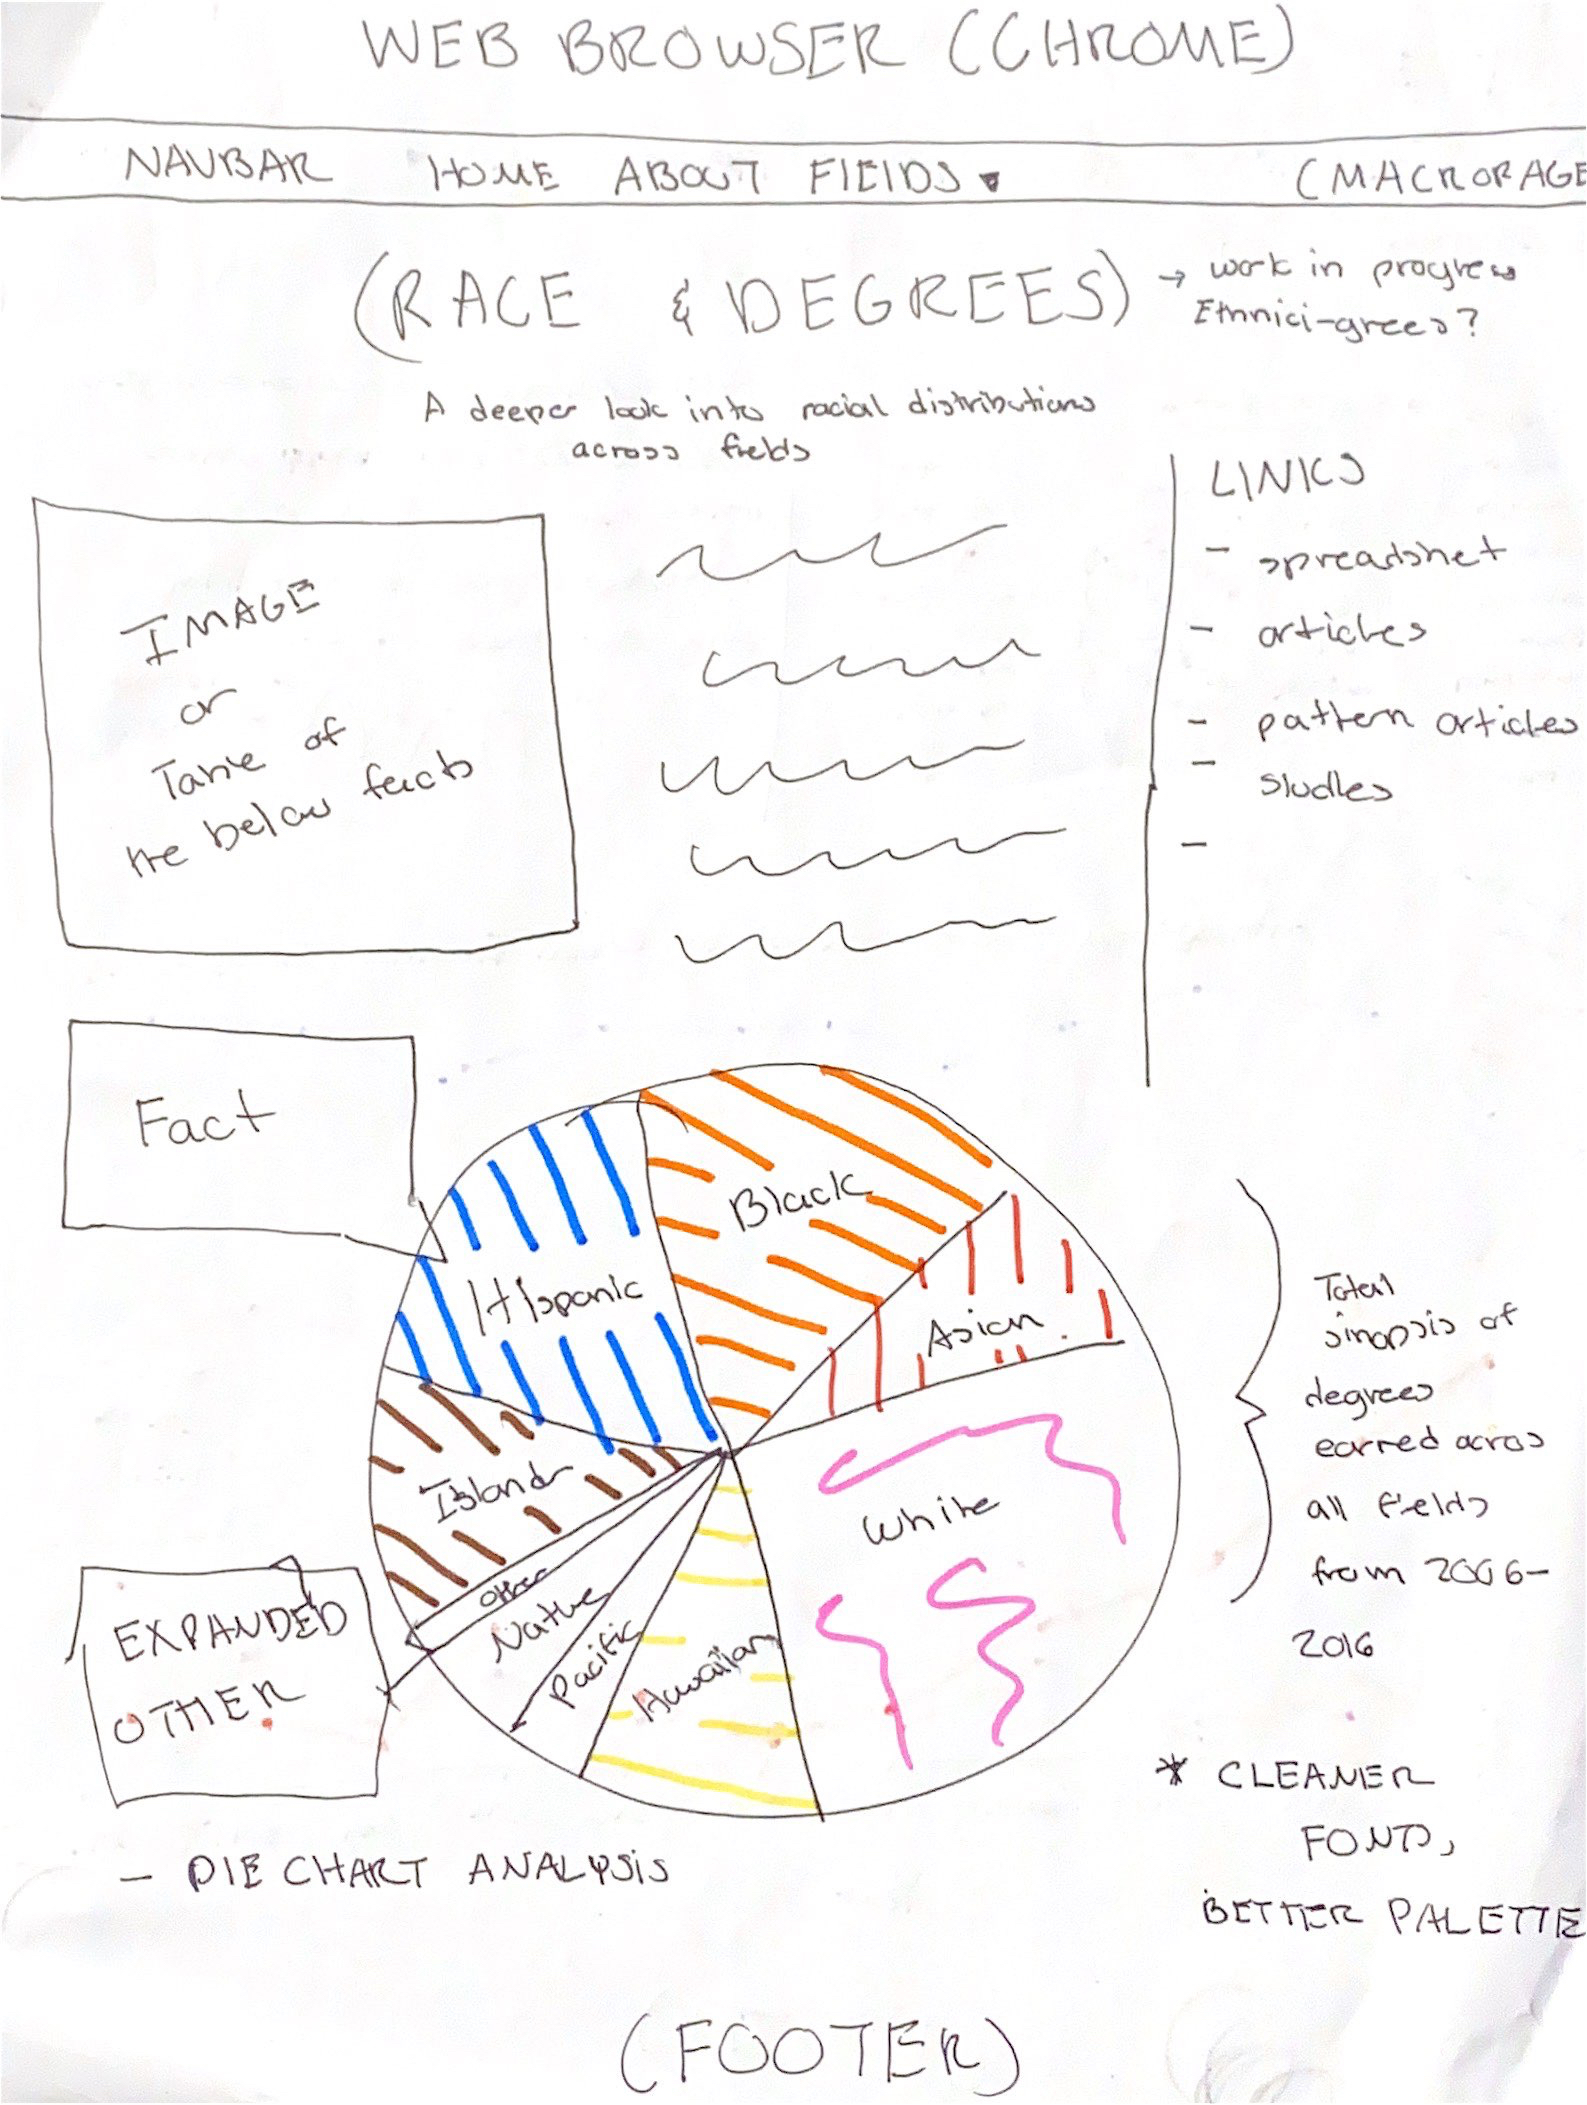 WEB BROWSER (CHROME)
NAVBAR HOME ABOUT FIELDS (MACROPAGE
(RACE & DEGREES) → work in progress
Ethnici-grees?
A deeper look into racial distributions
across fields
LINKS
- spreadshet
- articles
- pattern articles
- studies
-
IMAGE
or
Table of
the below facts
Fact
Black
Hispanic
Asian
Island
White
other
Native
Pacific
Hawaiian
EXPANDED
OTHER
Total
sinopsis of
degrees
earred acros
all fields
from 2006-
2016
- PIE CHART ANALYSIS
* CLEANER
FONTS,
BETTER PALETTE
(FOOTER)